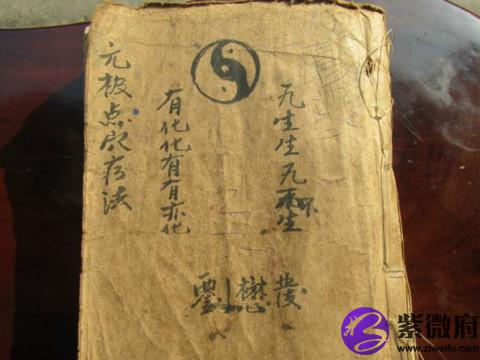 旡生生旡不生
有化化有有亦化
元极点穴存法
劉懋
紫微府
www.ziweifu.com